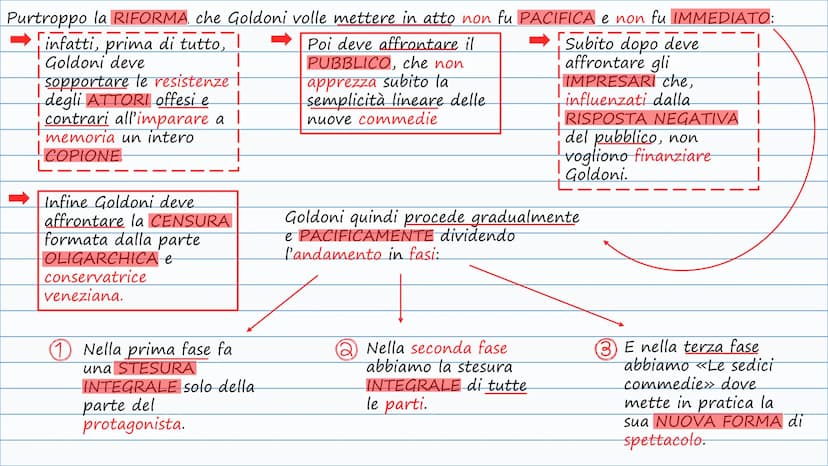 Purtroppo la RIFORMA che Goldoni volle mettere in atto non fu PACIFICA e non fu IMMEDIATO:
infatti, prima di tutto,
Goldoni deve
sopportare le resistenze
degli ATTORI offesi e
contrari all'imparare a
memoria un intero
COPIONE.
Poi deve affrontare il
PUBBLICO, che non
apprezza subito la
semplicità lineare delle
nuove commedie
Subito dopo deve
affrontare gli
IMPRESARI che,
influenzati dalla
RISPOSTA NEGATIVA
del pubblico, non
vogliono finanziare
Goldoni.
Infine Goldoni deve
affrontare la CENSURA
formata dalla parte
OLIGARCHICA e
conservatrice
veneziana.
Goldoni quindi procede gradualmente
e PACIFICAMENTE dividendo
l'andamento in fasi:
1 Nella prima fase fa
una STESURA
INTEGRALE solo della
parte del
protagonista.
2 Nella seconda fase
abbiamo la stesura
INTEGRALE di tutte
le parti.
3 E nella terza fase
abbiamo «Le sedici
commedie» dove
mette in pratica la
sua NUOVA FORMA di
spettacolo.